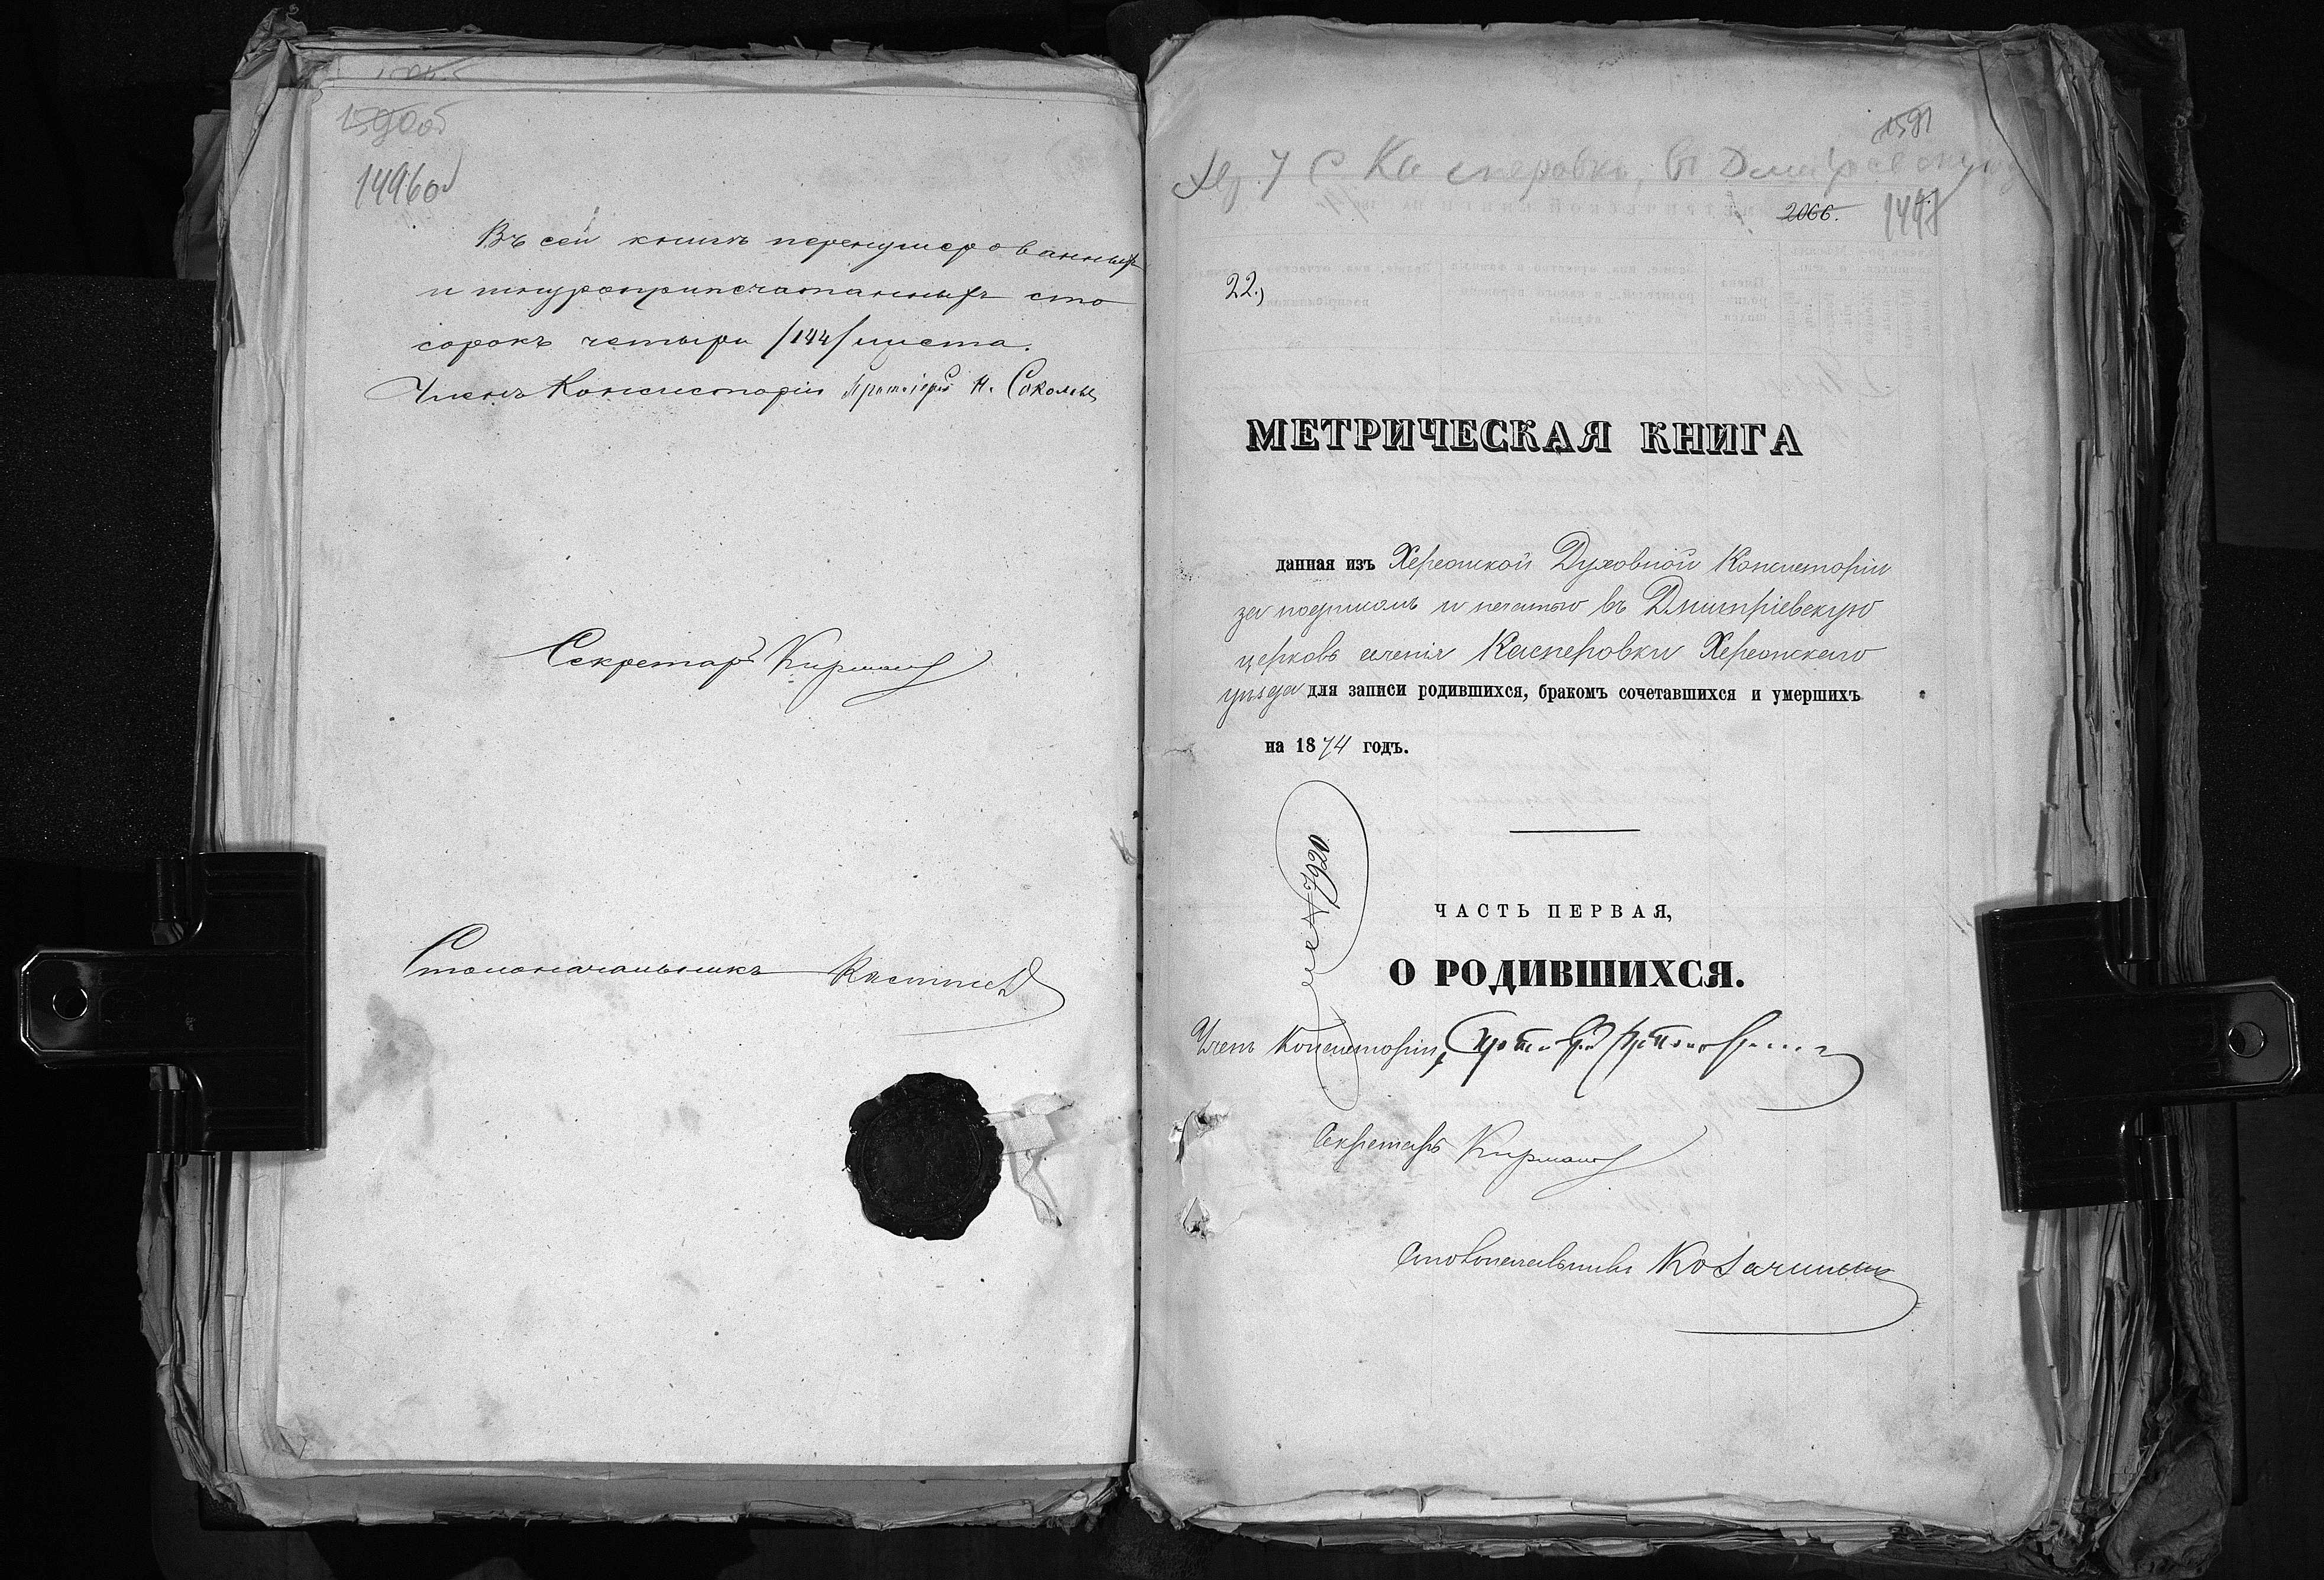 1590об
1496об
Въ сей книгѣ перенумерованныхъ
и шнуроприпечатанныхъ сто
сорокъ четыри /144/ листа.
Членъ Консисторіи Протоіерей Н. Соколовъ
Секретарь
Столоначальникъ
1591
у. С Касперовка, в Дмитріевскую
2066. 1497
22,
МЕТРИЧЕСКАЯ КНИГА
данная изъ Херсонской Духовной Консисторіи
за подписомъ и печатью въ Дмитріевскую
церковь селенія Касперовки Херсонскаго
уѣзда для записи родившихся, бракомъ сочетавшихся и умершихъ
на 1874 годъ.
№ 7920
ЧАСТЬ ПЕРВАЯ,
О РОДИВШИХСЯ.
Членъ Консисторіи,
Секретарь
Столоначальникъ